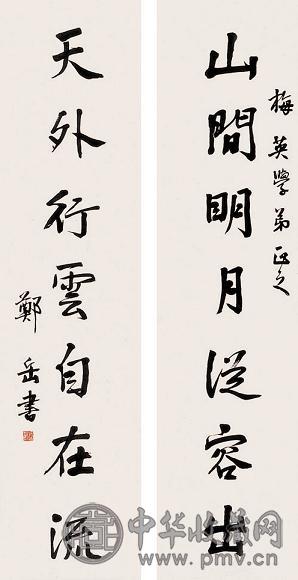 梅英學弟正之
山間明月從容出
天外行雲自在流
鄭岳書
中华收藏网
www.pmv.cn